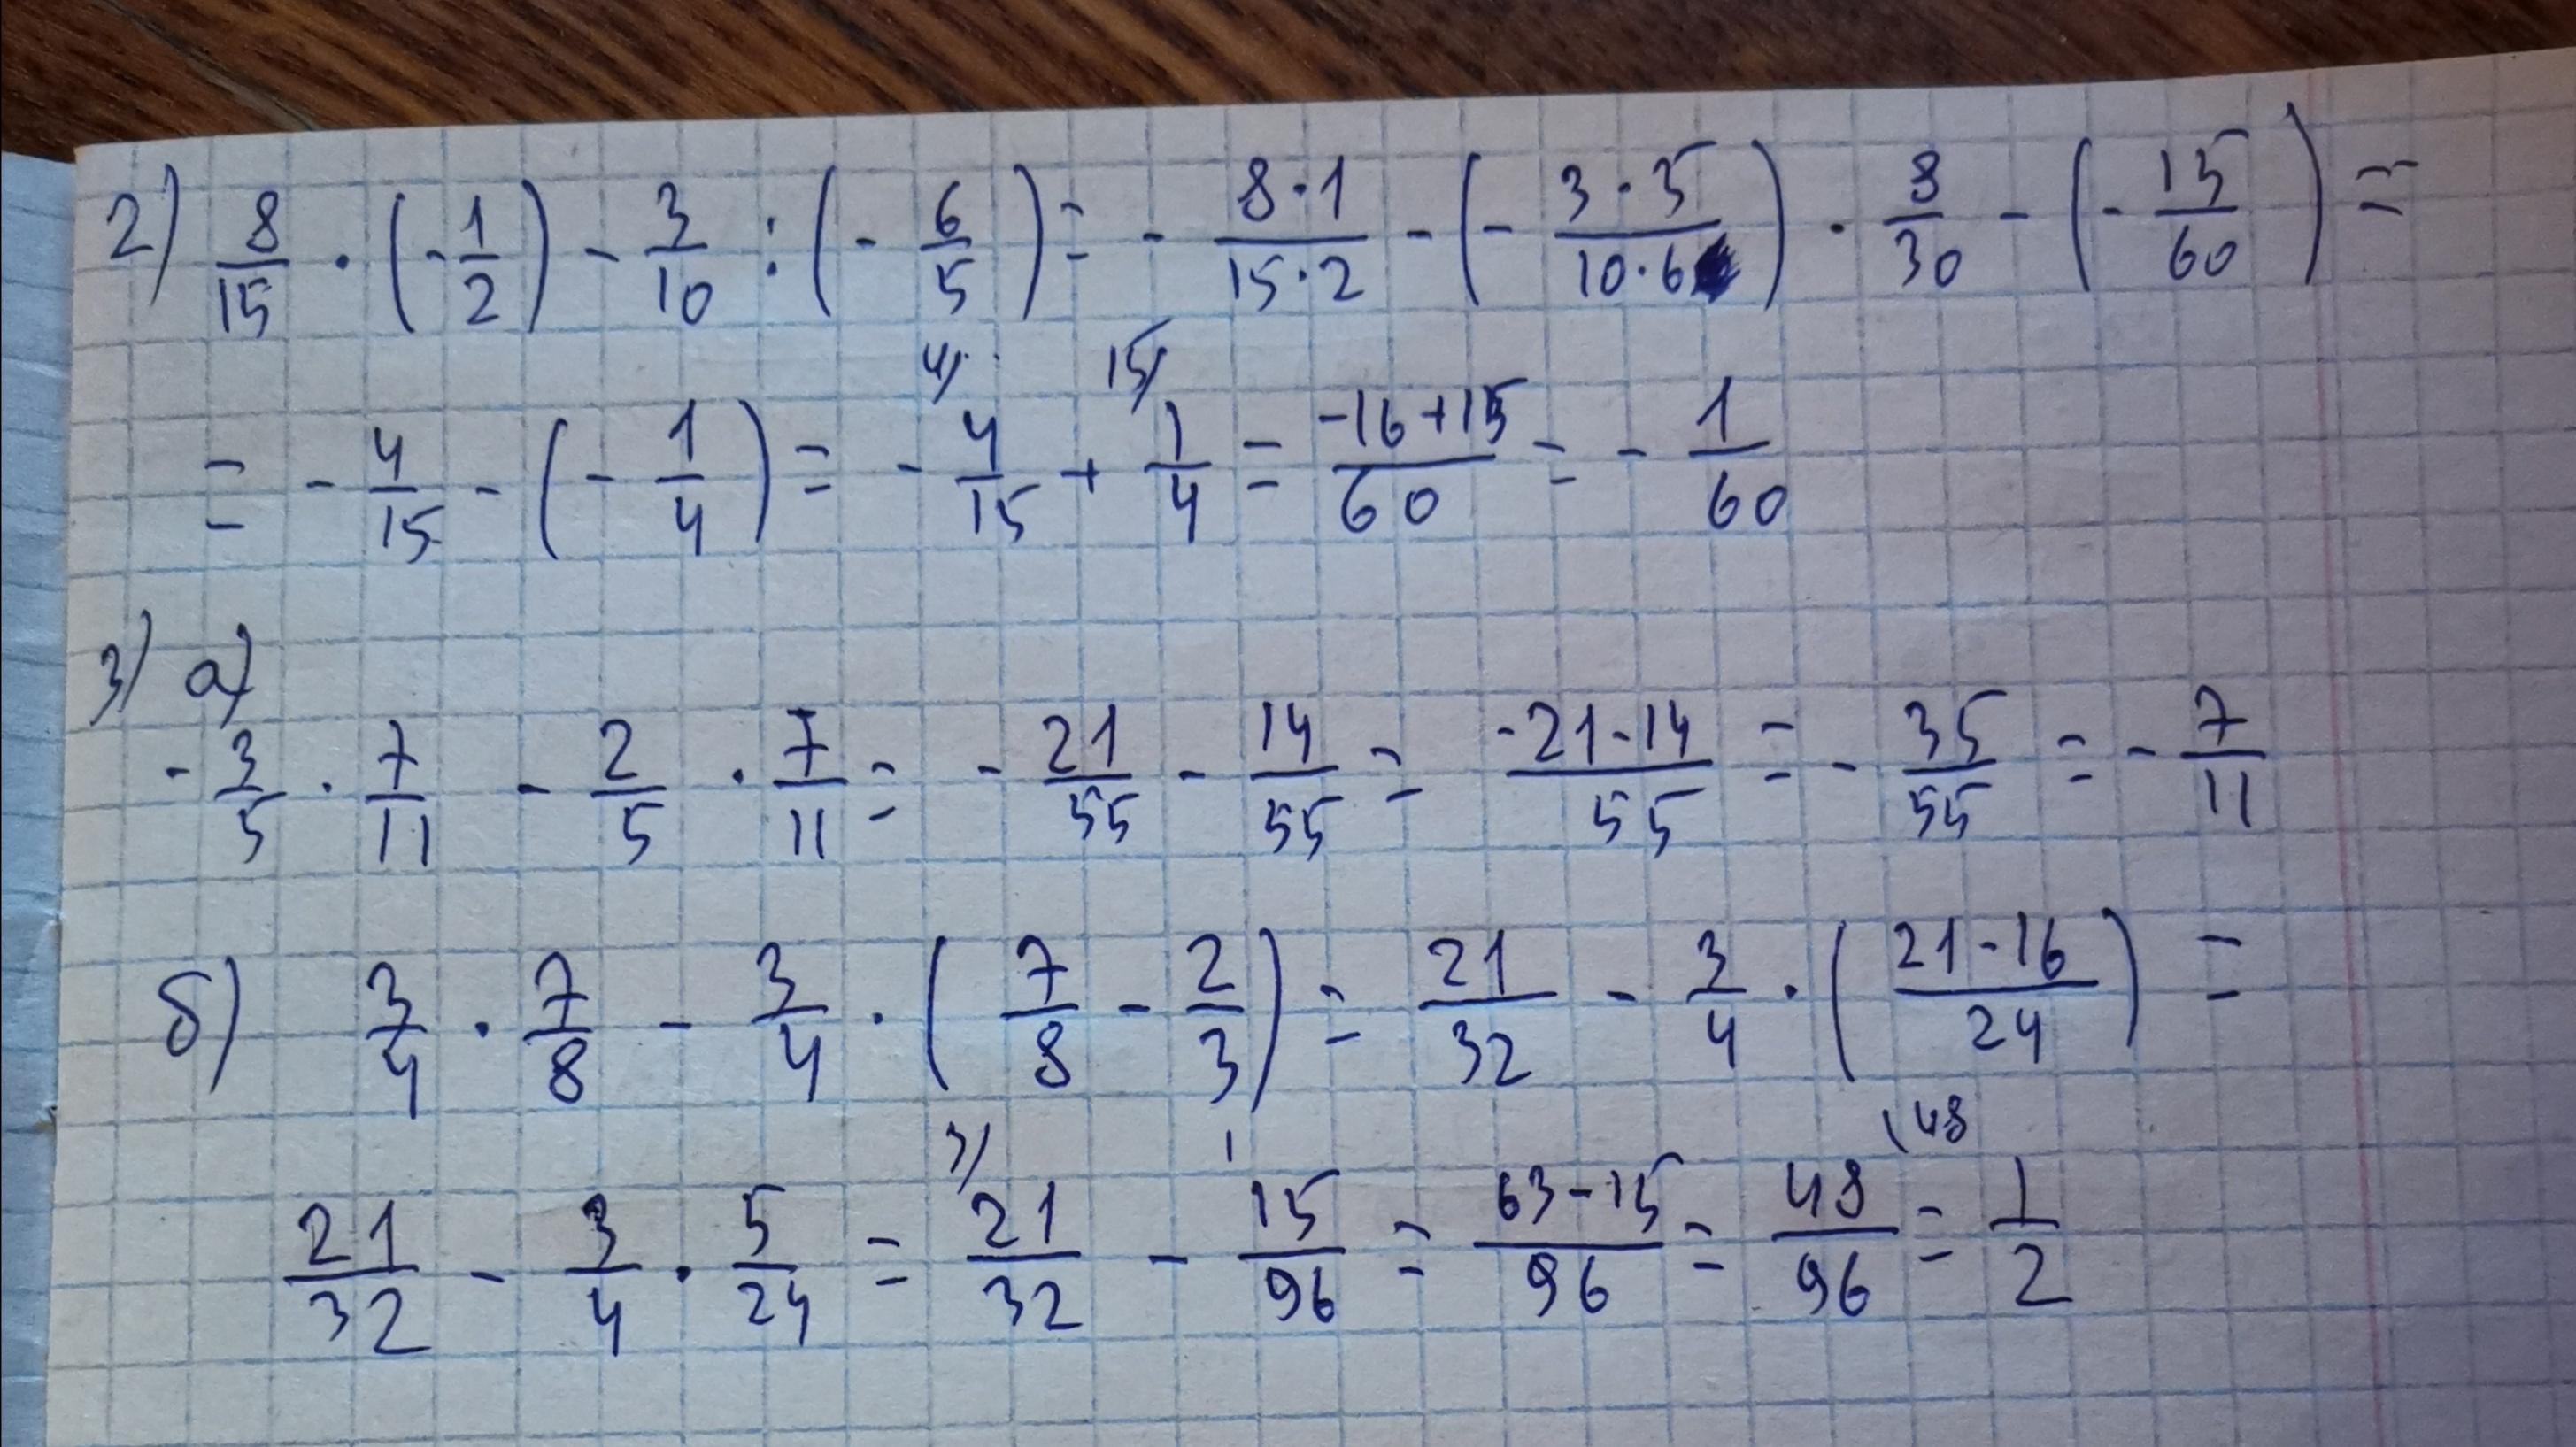 2) 8/15 · (-1/2) - 3/10 : (-6/5) = - 8·1/15·2 - (- 3·5/10·6) · 8/30 - (- 15/60) =
4) 15)
= - 4/15 - (- 1/4) = - 4/15 + 1/4 = -16+15/60 = - 1/60
3) а)
- 3/5 · 7/11 - 2/5 · 7/11 = - 21/55 - 14/55 = -21-14/55 = - 35/55 = - 7/11
б) 3/4 · 7/8 - 3/4 · (7/8 - 2/3) = 21/32 - 3/4 · (21-16/24) =
3) 1 (48
21/32 - 3/4 · 5/24 = 21/32 - 15/96 = 63-15/96 = 48/96 = 1/2